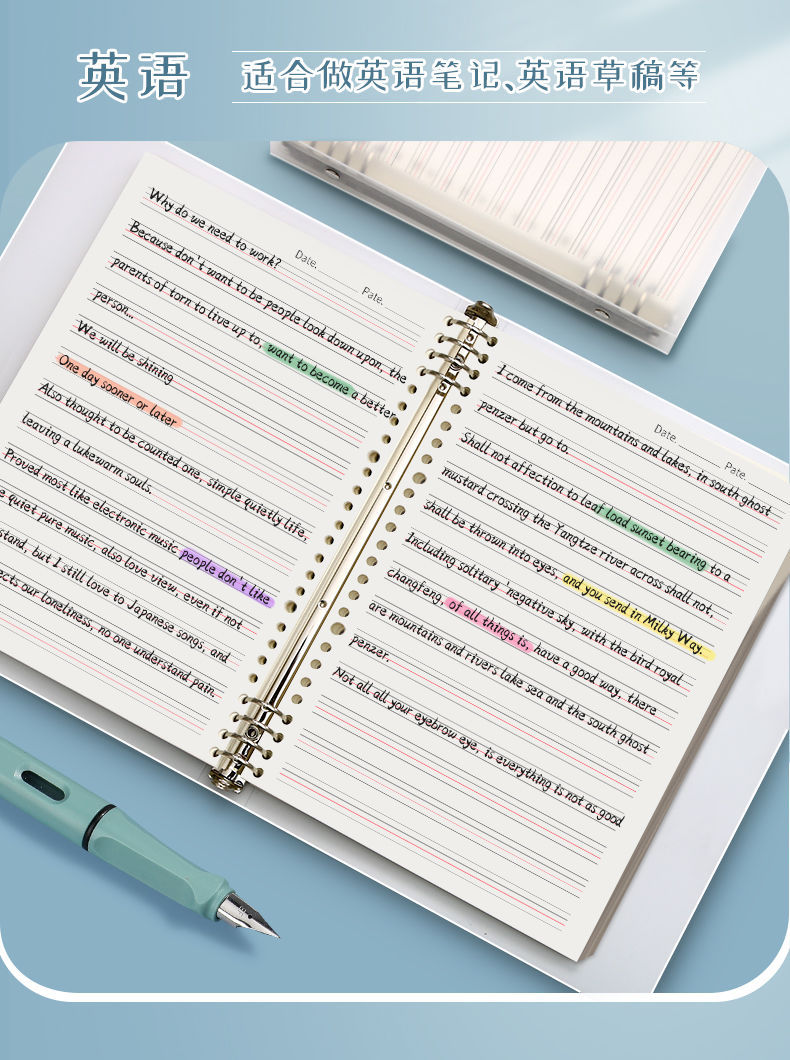 英语 适合做英语笔记、英语草稿等
Why do we need to work?
Date. Pate.
Because don't want to be people look down upon, the
parents of torn to live up to, want to become a better
person...
We will be shining
One day sooner or later
Also thought to be counted one, simple quietly life,
leaving a lukewarm souls.
Proved most like electronic music people don't like
quiet pure music, also love view, even if not
but I still love to Japanese songs, and
our loneliness, no one understand pain.
I come from the mountains and lakes, in south ghost
Date. Pate.
penzer but go to.
Shall not affection to leaf load sunset bearing to a
mustard crossing the Yangtze river across shall not,
shall be thrown into eyes, and you send in Milky Way.
Including solitary 'negative sky, with the bird royal
changfeng, of all things is, have a good way, there
are mountains and rivers lake sea and the south ghost
penzer.
Not all all your eyebrow eye, is everything is not as good